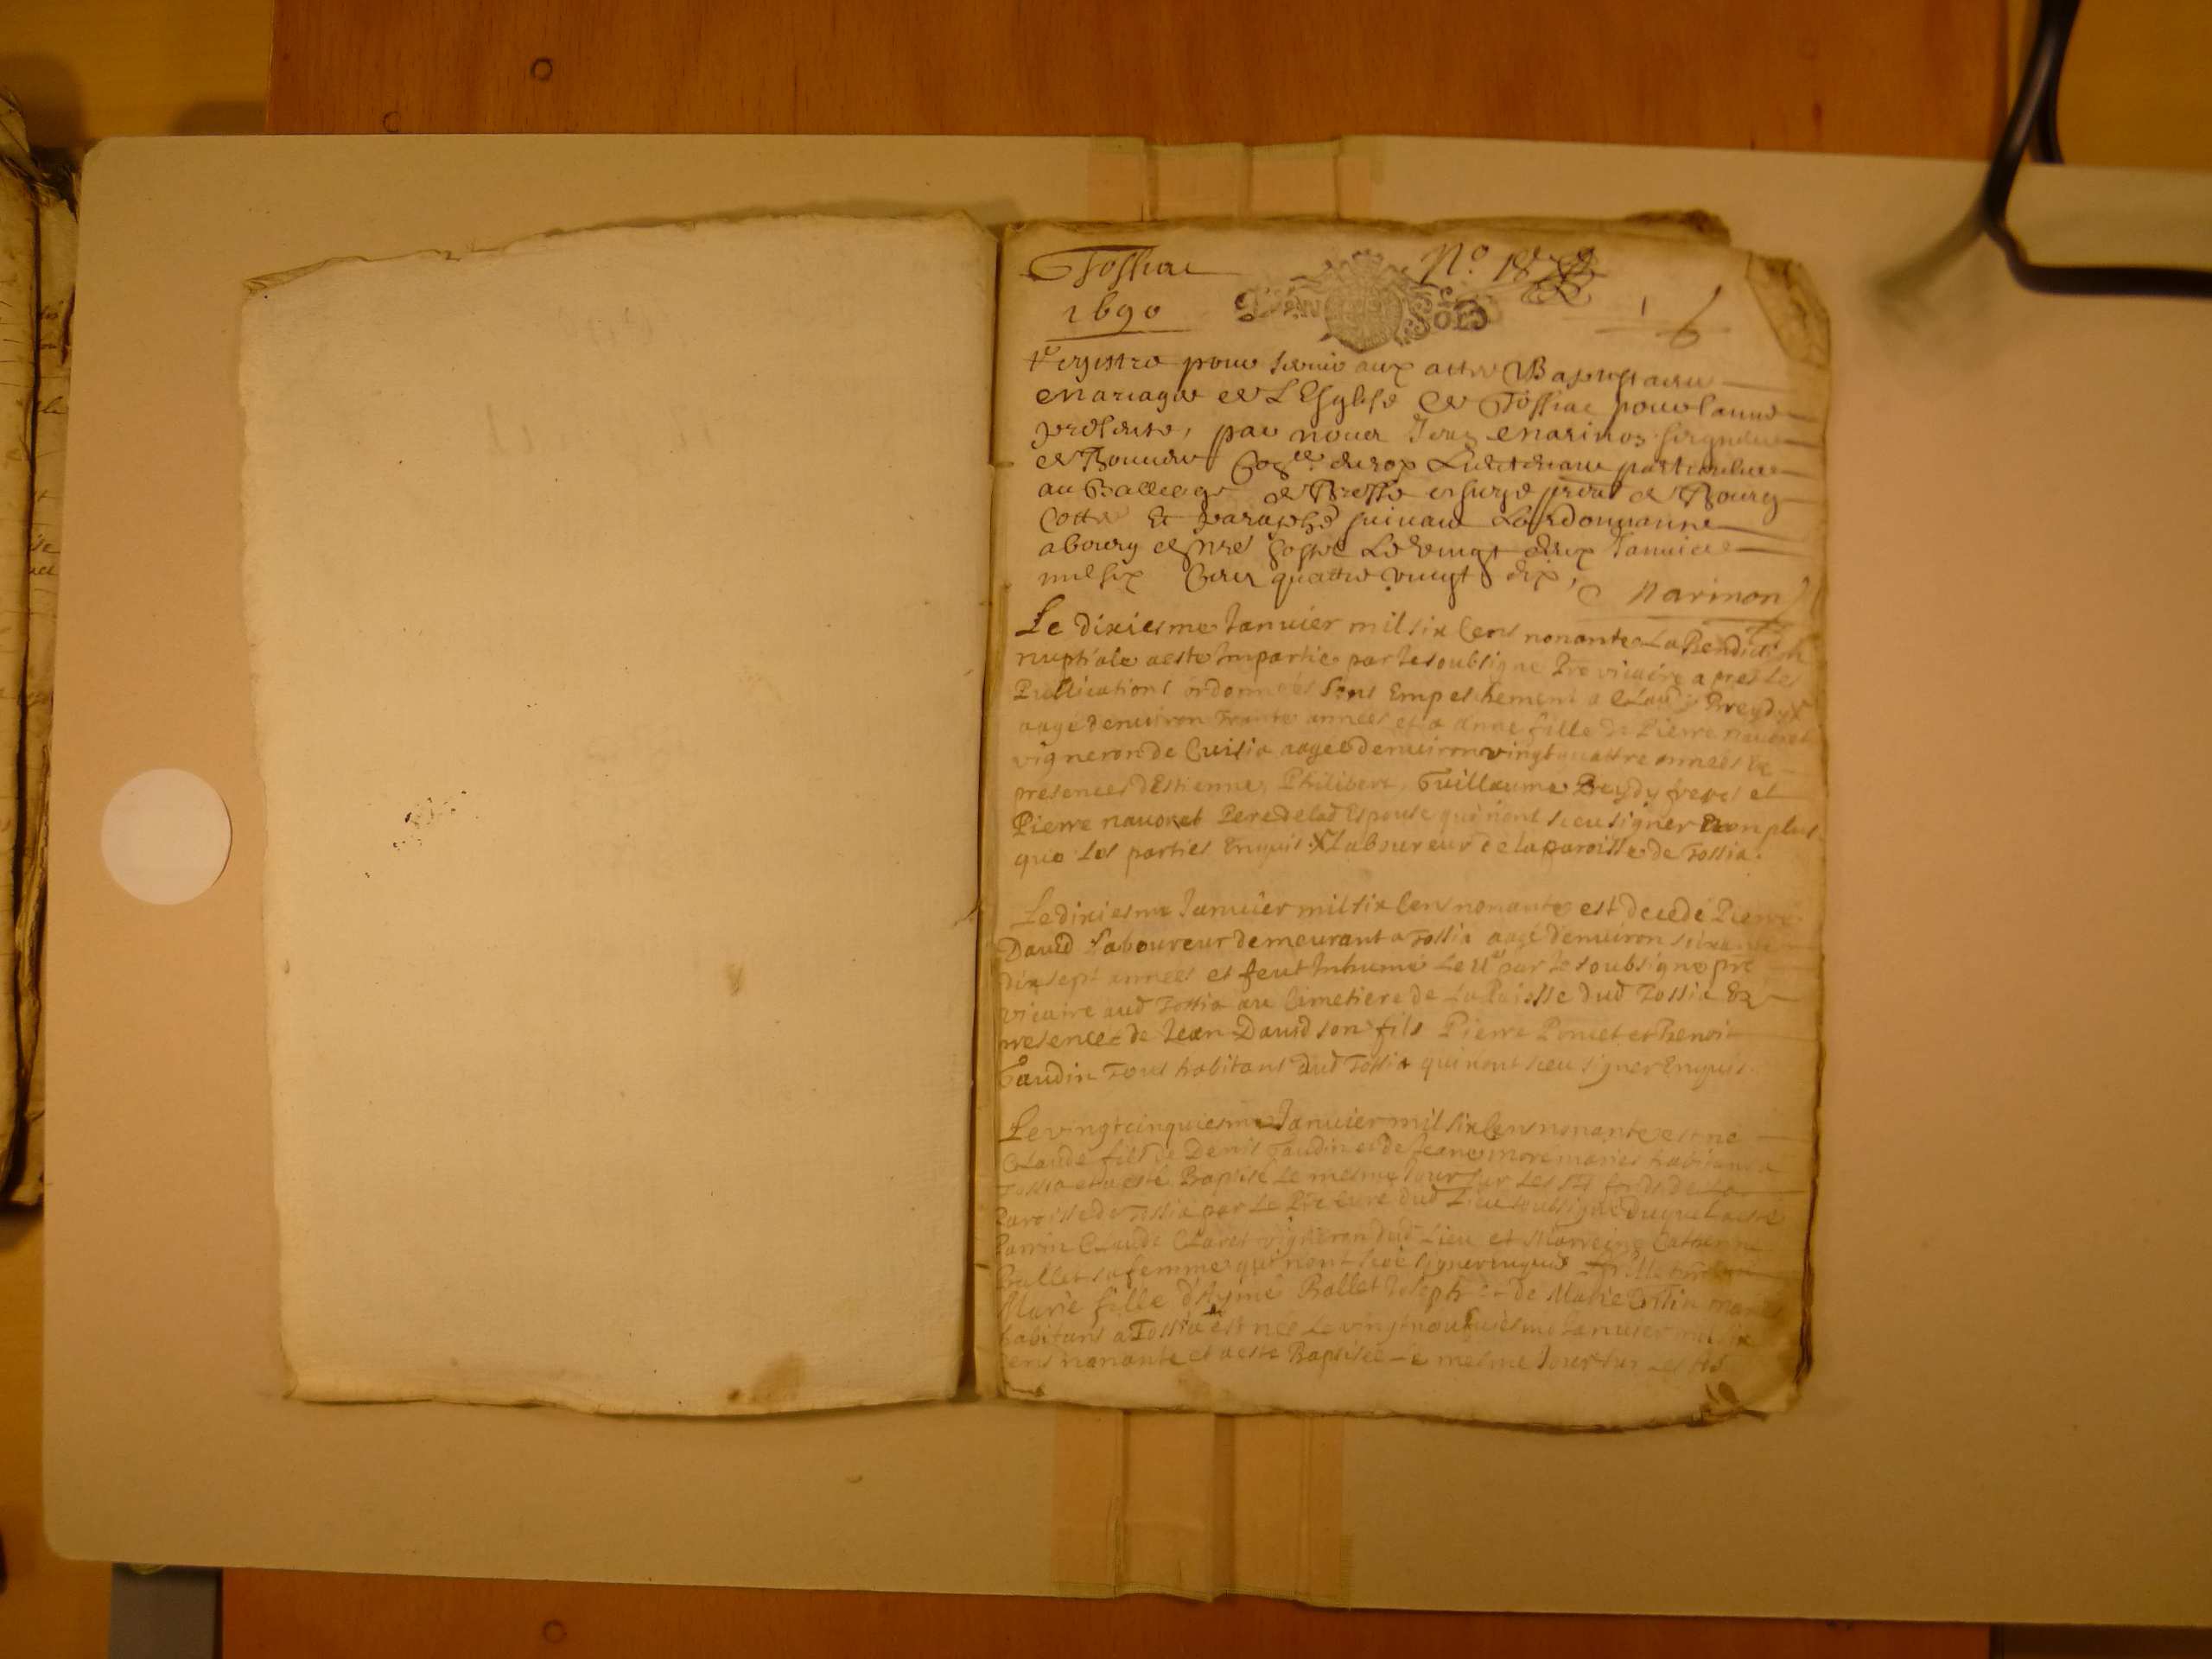 Tossiac
No. 18
1690
DEUX SOLS
1
Registre pour servir aux actes Baptistaires
Mariages de L'Esglise de Tossiac pour l'année
presente, par nous Marinon seigneur
de particulier
au Balliage de Bresse et juge de Bourg
Cotté Et paraphé suivant L'ordonnance
a bourg Le vingt deux Janvier
mil six Cens quattre vingt dix,
Marinon
Le dixiesme Janvier mil six Cens nonante La Benediction
nuptiale aesté Impartie par Je soubsigne Pre vicaire apres les
Publications ordonnées sans Empeschement a Claude Breydy X
aagé denviron Trente années et a Anne fille de Pierre navoret
vigneron de Cuisia aageé denviron vingtquattre années Ex
presences d'Estienne, Philibert, Guillaume Breydy freres et
Pierre navoret Pere de lad Espouse qui nont sceu signer non plus
que Les parties Enquis X Laboureur de la paroisse de Tossia.
Le dixiesme Janvier mil six Cens nonante est decedé Pierre
David Laboureur demeurant a Tossia aagé denviron soixante
dix sept années et feut Inhumé Le 11e par Je soubsigne pre
vicaire aud Tossia au Cimetiere de La Paroisse dud Tossia Ex
presence de Jean David son fils Pierre Poncet et Benoit
Gaudin Tous habitans dud Tossia qui nont sceu signer Enquis.
Le vingtcinquiesme Janvier mil six Cens nonante est né
Claude fils de Denis Gaudin et de Jeane more mariés habitans a
Tossia et aesté Baptisé Le mesme Jour sur Les fonds de La
Paroisse de Tossia par Le Pre Curé dud Lieu soubsigné Duquel aesté
Parrin Claude Claret vigneron dud Lieu et Marreine Catherine
Ballet sa femme qui nont sceu signer enquis
Marie fille d'Aymé Ballet Joseph et de Marie mariés
habitans a Tossia est neé Le vingtneufviesme Janvier mil six
Cens nonante et aesté Baptiseé Le mesme Jour sur Les